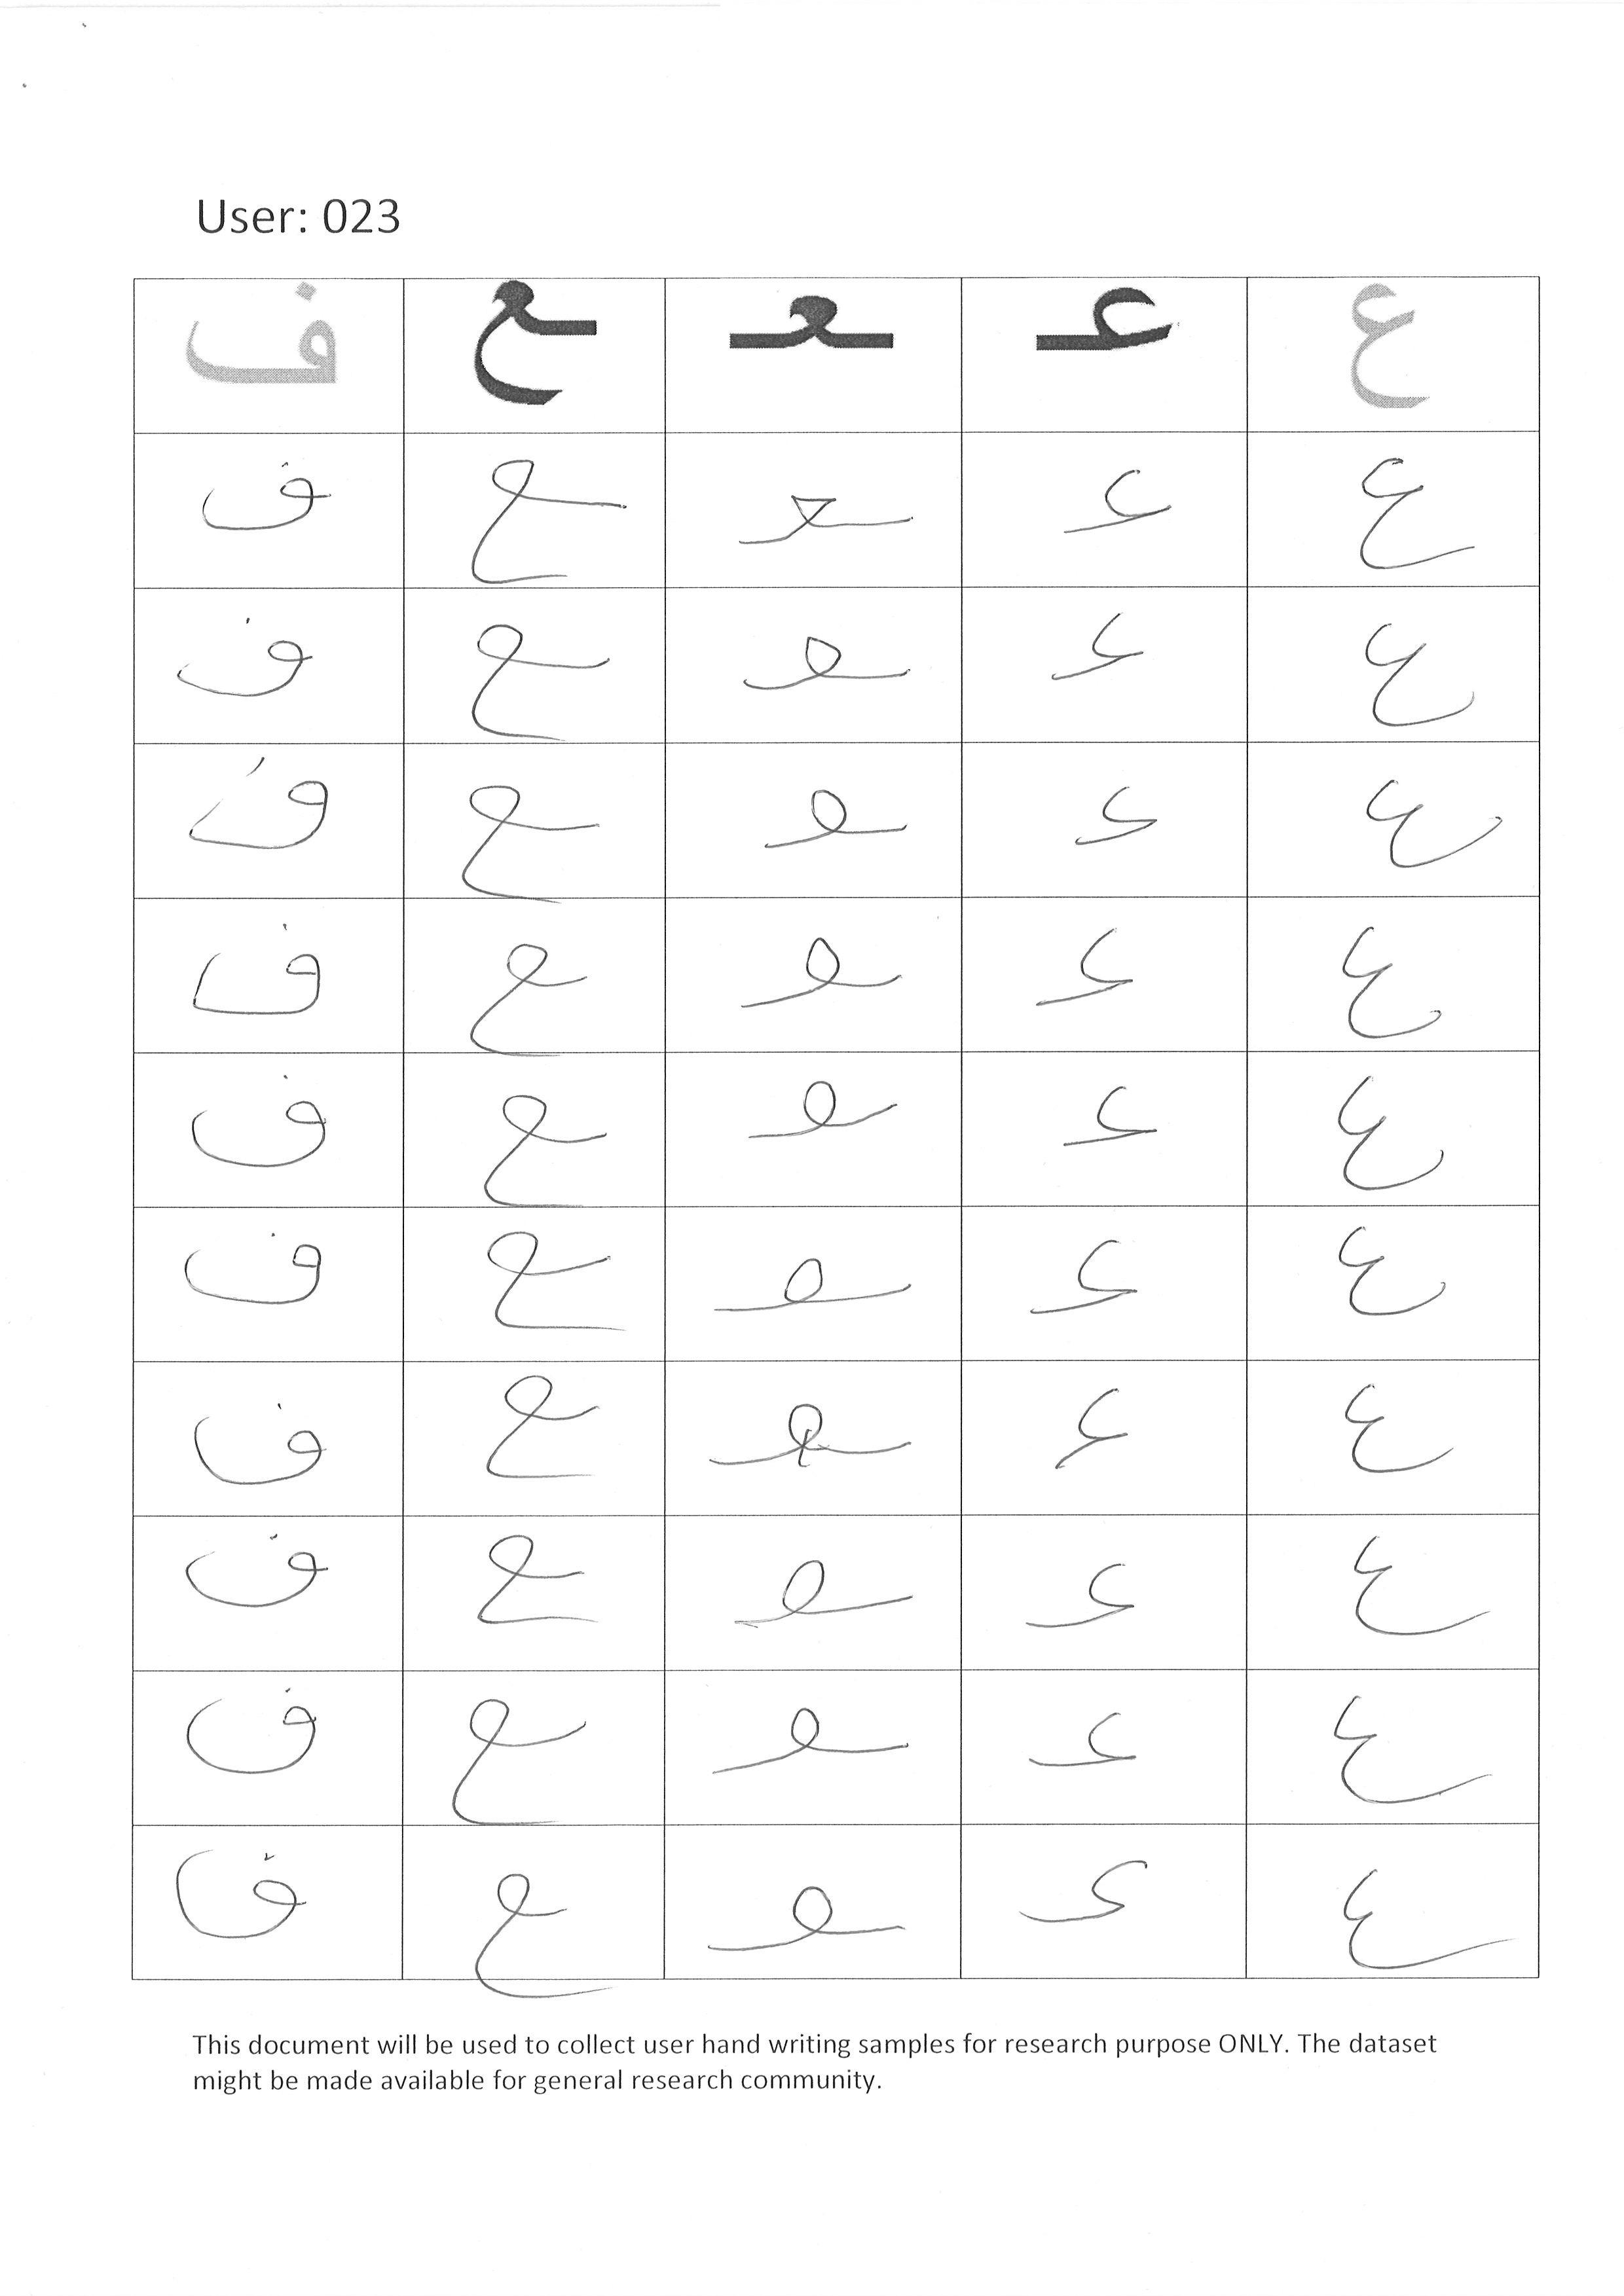 User: 023
ع عـ ـعـ ـع ف
ع عـ ـعـ ـع ف
ع عـ ـعـ ـع ف
ع عـ ـعـ ـع ف
ع عـ ـعـ ـع ف
ع عـ ـعـ ـع ف
ع عـ ـعـ ـع ف
ع عـ ـعـ ـع ف
ع عـ ـعـ ـع ف
ع عـ ـعـ ـع ف
ع عـ ـعـ ـع ف
This document will be used to collect user hand writing samples for research purpose ONLY. The dataset
might be made available for general research community.